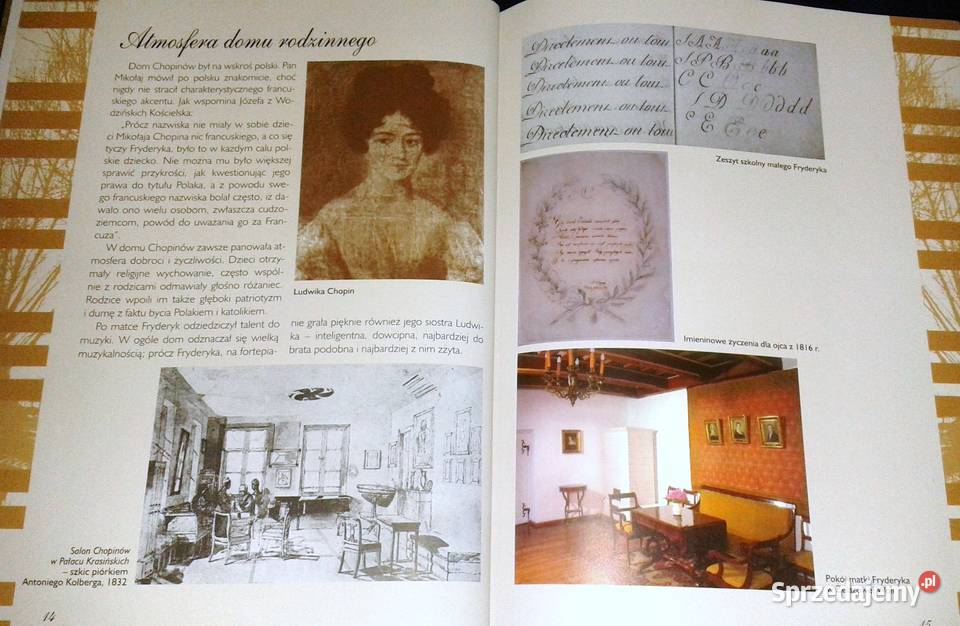 Atmosfera domu rodzinnego
Dom Chopinów był na wskroś polski. Pan
Mikołaj mówił po polsku znakomicie, choć
nigdy nie stracił charakterystycznego francu-
skiego akcentu. Jak wspomina Józefa z Wo-
dzińskich Kościelska:
„Prócz nazwiska nie miały w sobie dzie-
ci Mikołaja Chopina nic francuskiego, a co się
tyczy Fryderyka, było to w każdym calu pol-
skie dziecko. Nie można mu było większej
sprawić przykrości, jak kwestionując jego
prawa do tytułu Polaka, a z powodu swe-
go francuskiego nazwiska bolał często, iż da-
wało ono wielu osobom, zwłaszcza cudzo-
ziemcom, powód do uważania go za Fran-
cuza”.
W domu Chopinów zawsze panowała at-
mosfera dobroci i życzliwości. Dzieci otrzy-
mały religijne wychowanie, często wspól-
nie z rodzicami odmawiały głośno różaniec.
Rodzice wpoili im także głęboki patriotyzm
i dumę z faktu bycia Polakiem i katolikiem.
Po matce Fryderyk odziedziczył talent do
muzyki. W ogóle dom odznaczał się wielką
muzykalnością; prócz Fryderyka, na fortepia-
Ludwika Chopin
nie grała pięknie również jego siostra Ludwi-
ka – inteligentna, dowcipna, najbardziej do
brata podobna i najbardziej z nim zżyta.
Salon Chopinów
w Pałacu Krasińskich
– szkic piórkiem
Antoniego Kolberga, 1832
14
Zeszyt szkolny małego Fryderyka
Imieninowe życzenia dla ojca z 1816 r.
Pokój matki Fryderyka
Sprzedajemy.pl
15